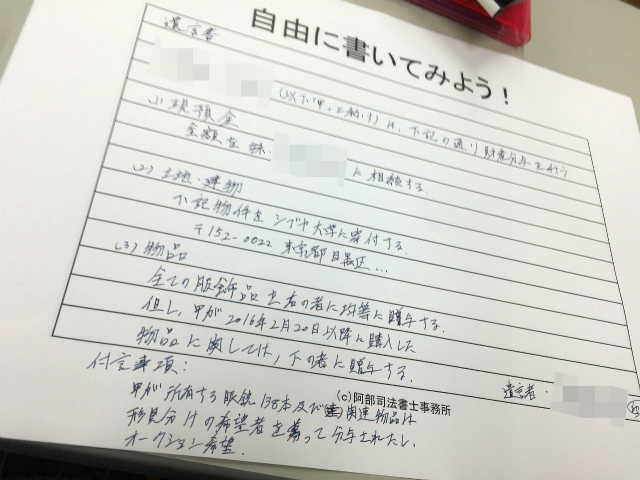 自由に書いてみよう!
遺言書
(以下甲と称す)は、下記の通り財産分与を行う
(1)現預金
全額を妹・に相続する。
(2)土地・建物
下記物件をシブヤ大学に寄付する。
〒152-0022 東京都目黒区…
(3)物品
全ての服飾品を右の者に均等に贈与する。
但し、甲が2016年2月20日以降に購入した
物品に関しては、下の者に贈与する。
遺言者・
付言事項:
甲が所有する眼鏡138本及び関連物品は
(c)阿部司法書士事務所
形見分けの希望者を募って分与されたし。
オークション希望.